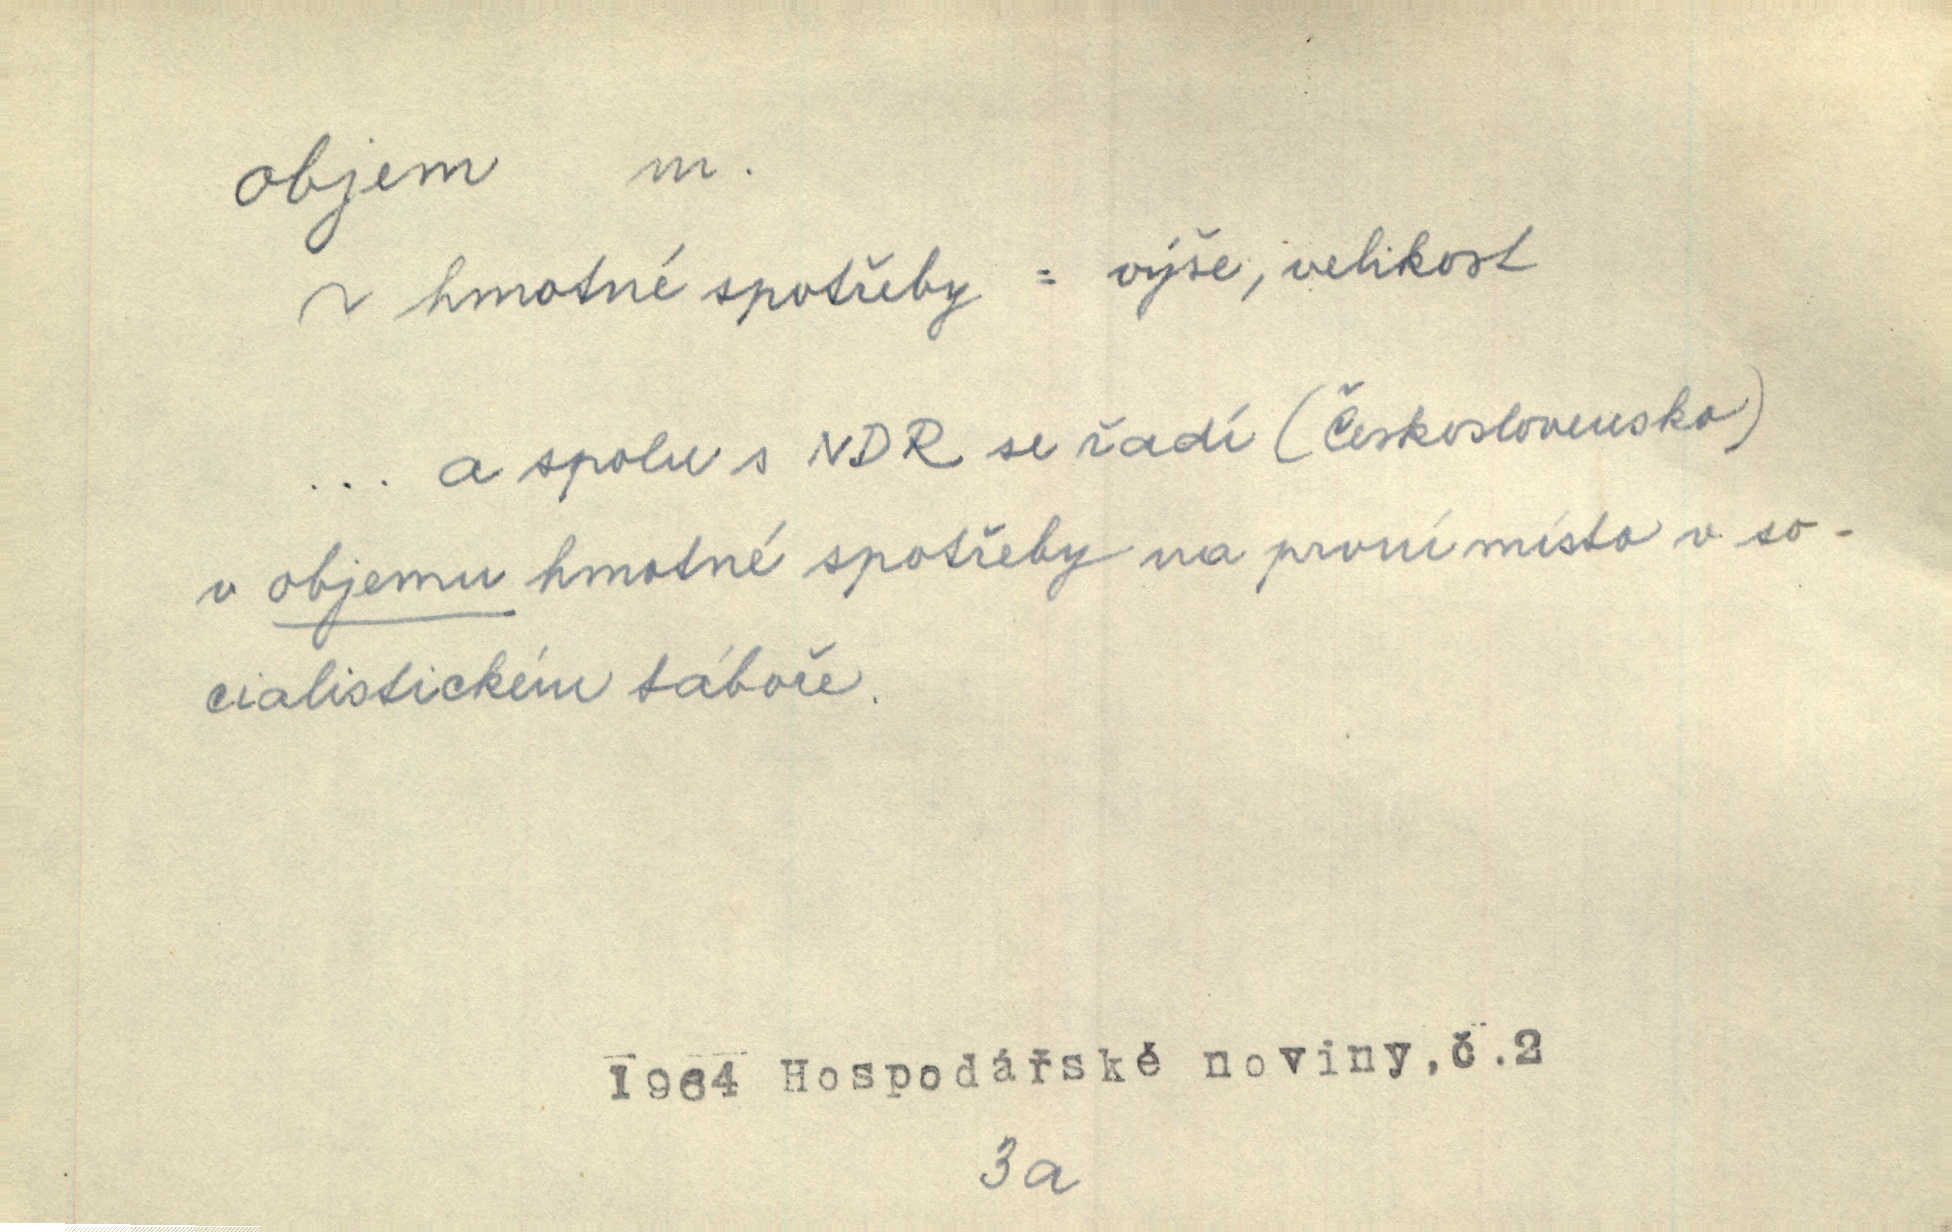 objem m.
~ hmotné spotřeby = výše, velikost
... a spolu s NDR se řadí (Československo)
v objemu hmotné spotřeby na první místo v so-
cialistickém táboře.
1964 Hospodářské noviny,č.2
3a